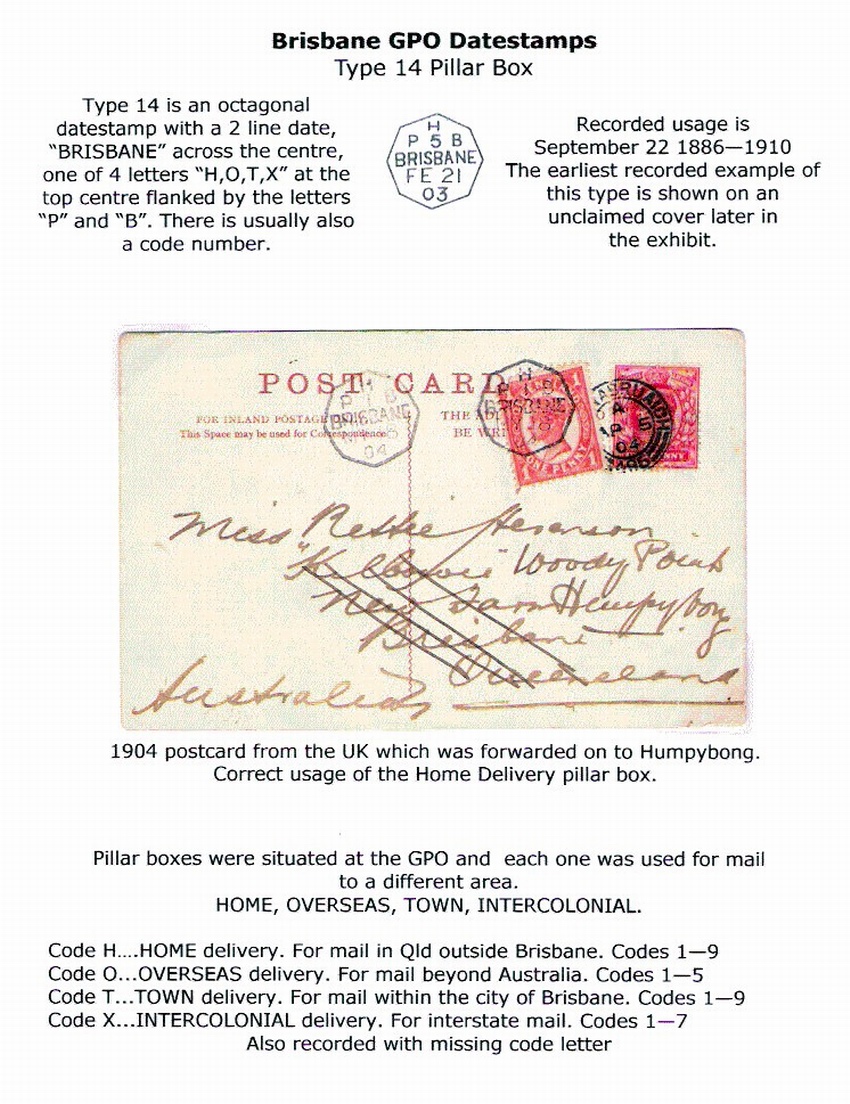 Brisbane GPO Datestamps
Type 14 Pillar Box
Type 14 is an octagonal
datestamp with a 2 line date,
“BRISBANE” across the centre,
one of 4 letters “H,O,T,X” at the
top centre flanked by the letters
“P” and “B”. There is usually also
a code number.
H
P 5 B
BRISBANE
FE 21
03
Recorded usage is
September 22 1886—1910
The earliest recorded example of
this type is shown on an
unclaimed cover later in
the exhibit.
POST CARD
FOR INLAND POSTAGE
This Space may be used for Correspondence
THE
BE WRI
H
P 1 B
BRISBANE
04
H
P 1 B
BRISBANE
ONE PENNY
04
Miss
Woody Point
New Farm Humpybong
Brisbane
Queensland
Australia
1904 postcard from the UK which was forwarded on to Humpybong.
Correct usage of the Home Delivery pillar box.
Pillar boxes were situated at the GPO and each one was used for mail
to a different area.
HOME, OVERSEAS, TOWN, INTERCOLONIAL.
Code H....HOME delivery. For mail in Qld outside Brisbane. Codes 1—9
Code O...OVERSEAS delivery. For mail beyond Australia. Codes 1—5
Code T...TOWN delivery. For mail within the city of Brisbane. Codes 1—9
Code X...INTERCOLONIAL delivery. For interstate mail. Codes 1—7
Also recorded with missing code letter